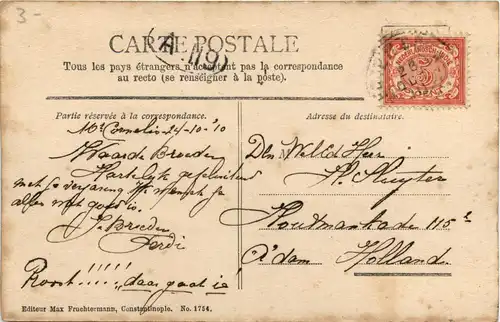 3-
CARTE POSTALE
Tous les pays étrangers n'acceptent pas la correspondance
au recto (se renséigner à la poste).
Partie réservée à la correspondance.
Mr Cornelis 24-10-'10
Waarde Broeder
Hartelyk gefeliciteerd
met je verjaring. Ik wensch je
alles wat goed is.
Je Broeder
Roost!!!!! daar gaat ie!
Adresse du destinataire.
Den WelEd Heer
Houtmankade 115
A'dam Holland.
Editeur Max Fruchtermann, Constantinople. No. 1754.